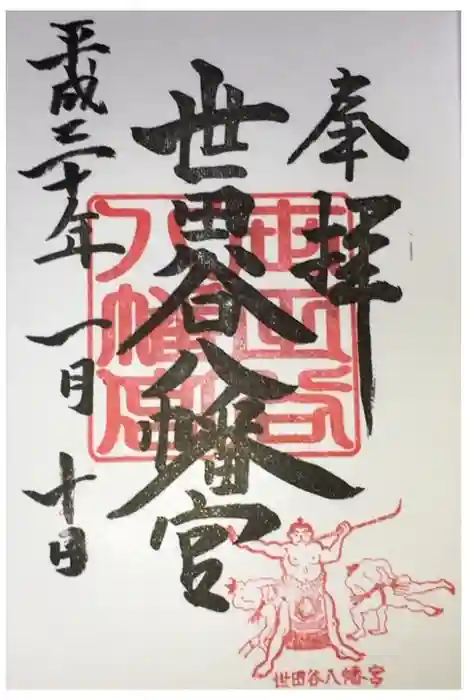 奉拝
世田谷八幡宮
平成三十年一月十日
世田谷八幡宮
世田谷八幡宮